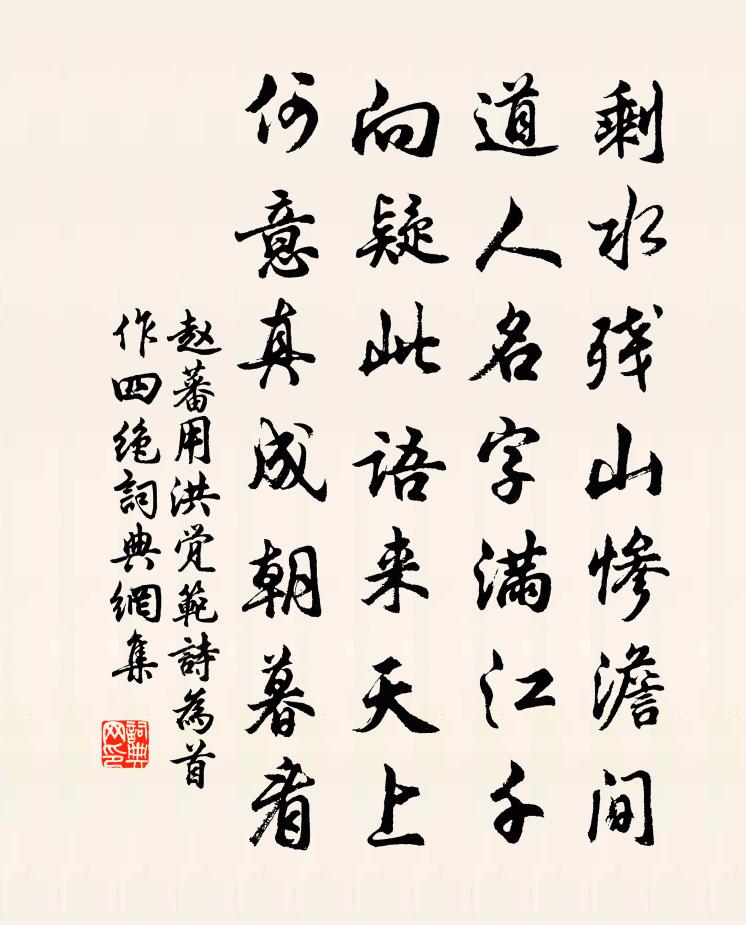 剩水残山慘澹间
道人名字满江千
向疑此语来天上
何意真成朝暮看
赵蕃用洪觉範詩為首
作四绝詞典網集
詞典网印